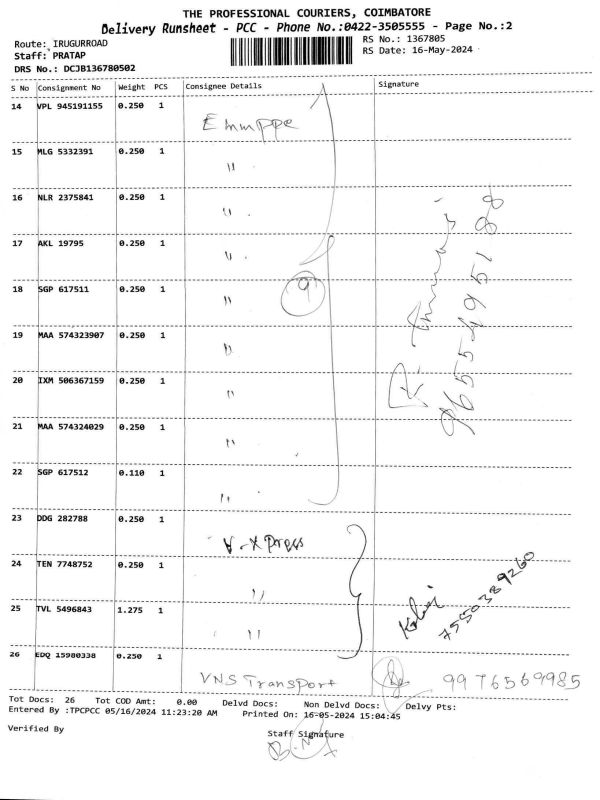 THE PROFESSIONAL COURIERS, COIMBATORE
Delivery Runsheet - PCC - Phone No.:0422-3505555 - Page No.:2
Route: IRUGURROAD
RS No.: 1367805
Staff: PRATAP
RS Date: 16-May-2024
DRS No.: DCJB136780502
S No Consignment No Weight PCS Consignee Details Signature
14 VPL 945191155 0.250 1 Emmppe
15 MLG 5332391 0.250 1 "
16 NLR 2375841 0.250 1 "
17 AKL 19795 0.250 1 "
18 SGP 617511 0.250 1 " 9
19 MAA 574323907 0.250 1 "
20 IXM 506367159 0.250 1 "
21 MAA 574324029 0.250 1 "
22 SGP 617512 0.110 1 "
9655495188
23 DDG 282788 0.250 1 V-Xpress
24 TEN 7748752 0.250 1 "
25 TVL 5496843 1.275 1 "
7550389260
26 EDQ 15980338 0.250 1 VNS Transport 9976569985
Tot Docs: 26 Tot COD Amt: 0.00 Delvd Docs: Non Delvd Docs: Delvy Pts:
Entered By :TPCPCC 05/16/2024 11:23:20 AM Printed On: 16-05-2024 15:04:45
Verified By
Staff Signature